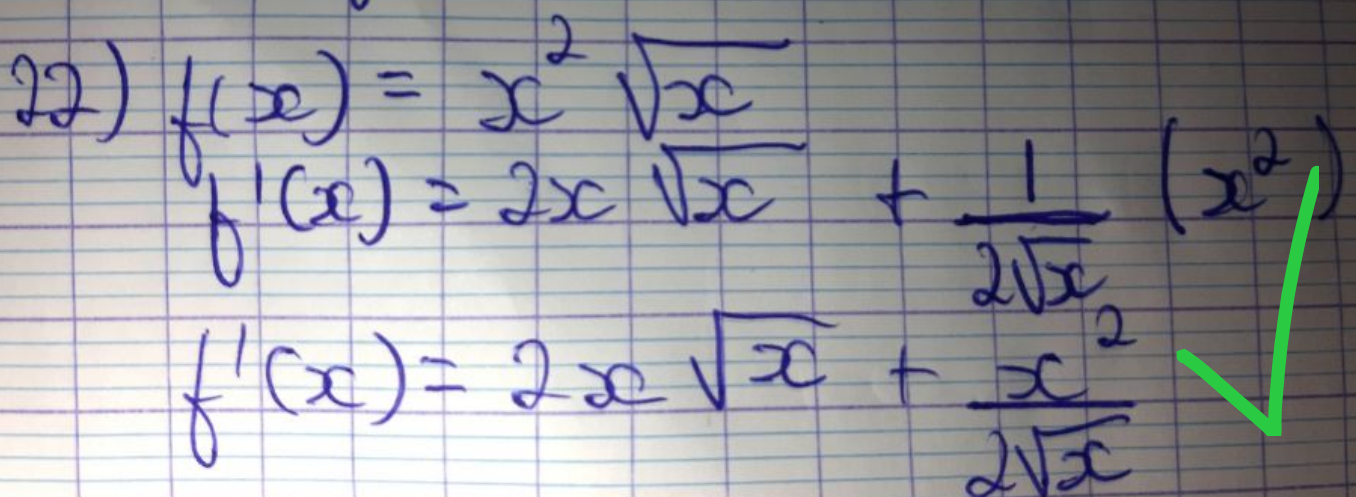 22) f(x) = x² √x
f'(x) = 2x √x + 1/(2√x) (x²)
f'(x) = 2x √x + x²/(2√x)